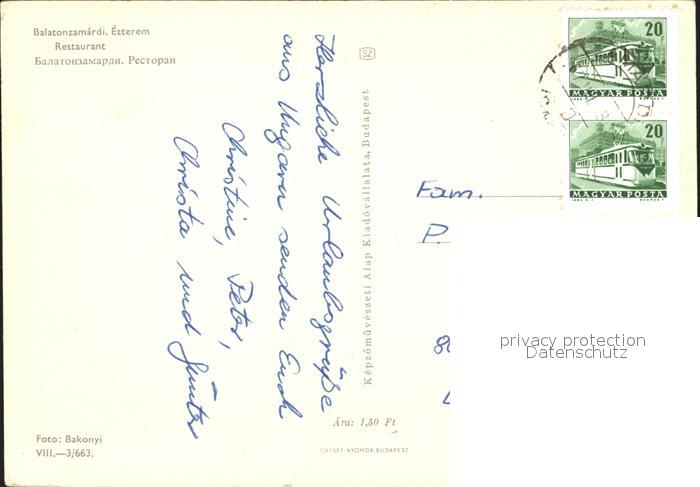 Balatonzamárdi. Étterem
Restaurant
Балатонзамарди. Ресторан
Herzliche Urlaubsgrüße
aus Ungarn senden Euch
Christine, Peter,
Christa und Günter
SZ
Képzőművészeti Alap Kiadóvállalata, Budapest
20f
MAGYAR POSTA
20f
MAGYAR POSTA
Fam.
P.
privacy protection
Datenschutz
Ára: 1,50 Ft
Foto: Bakonyi
VIII.—3/663.
OFFSET-NYOMDA, BUDAPEST